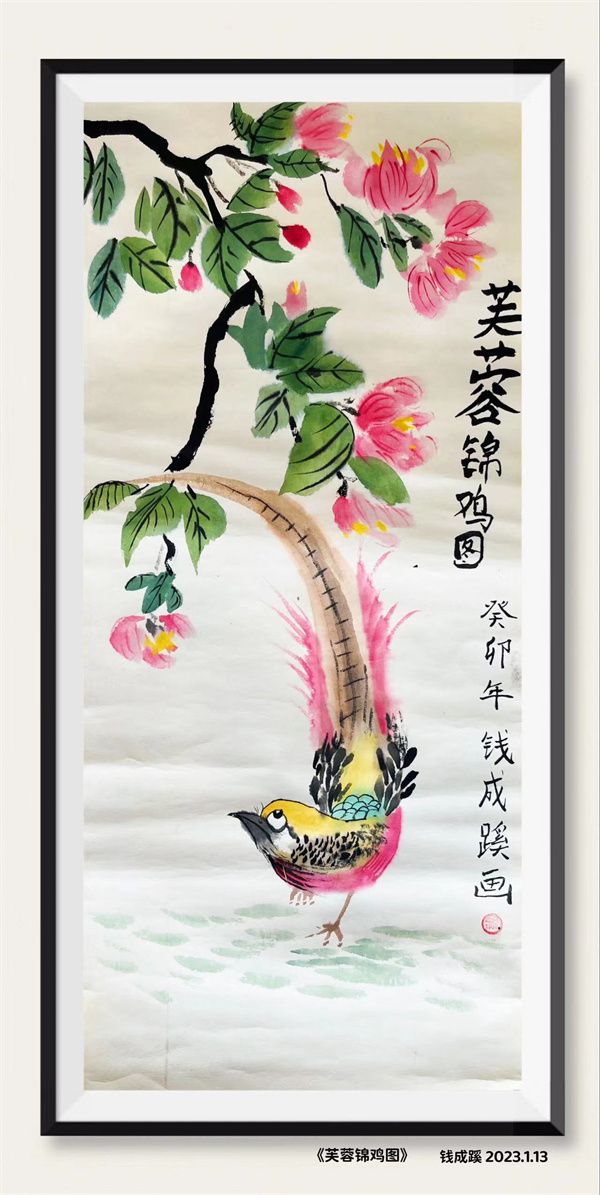 芙蓉锦鸡图
癸卯年 钱成蹊画
《芙蓉锦鸡图》 钱成蹊 2023.1.13